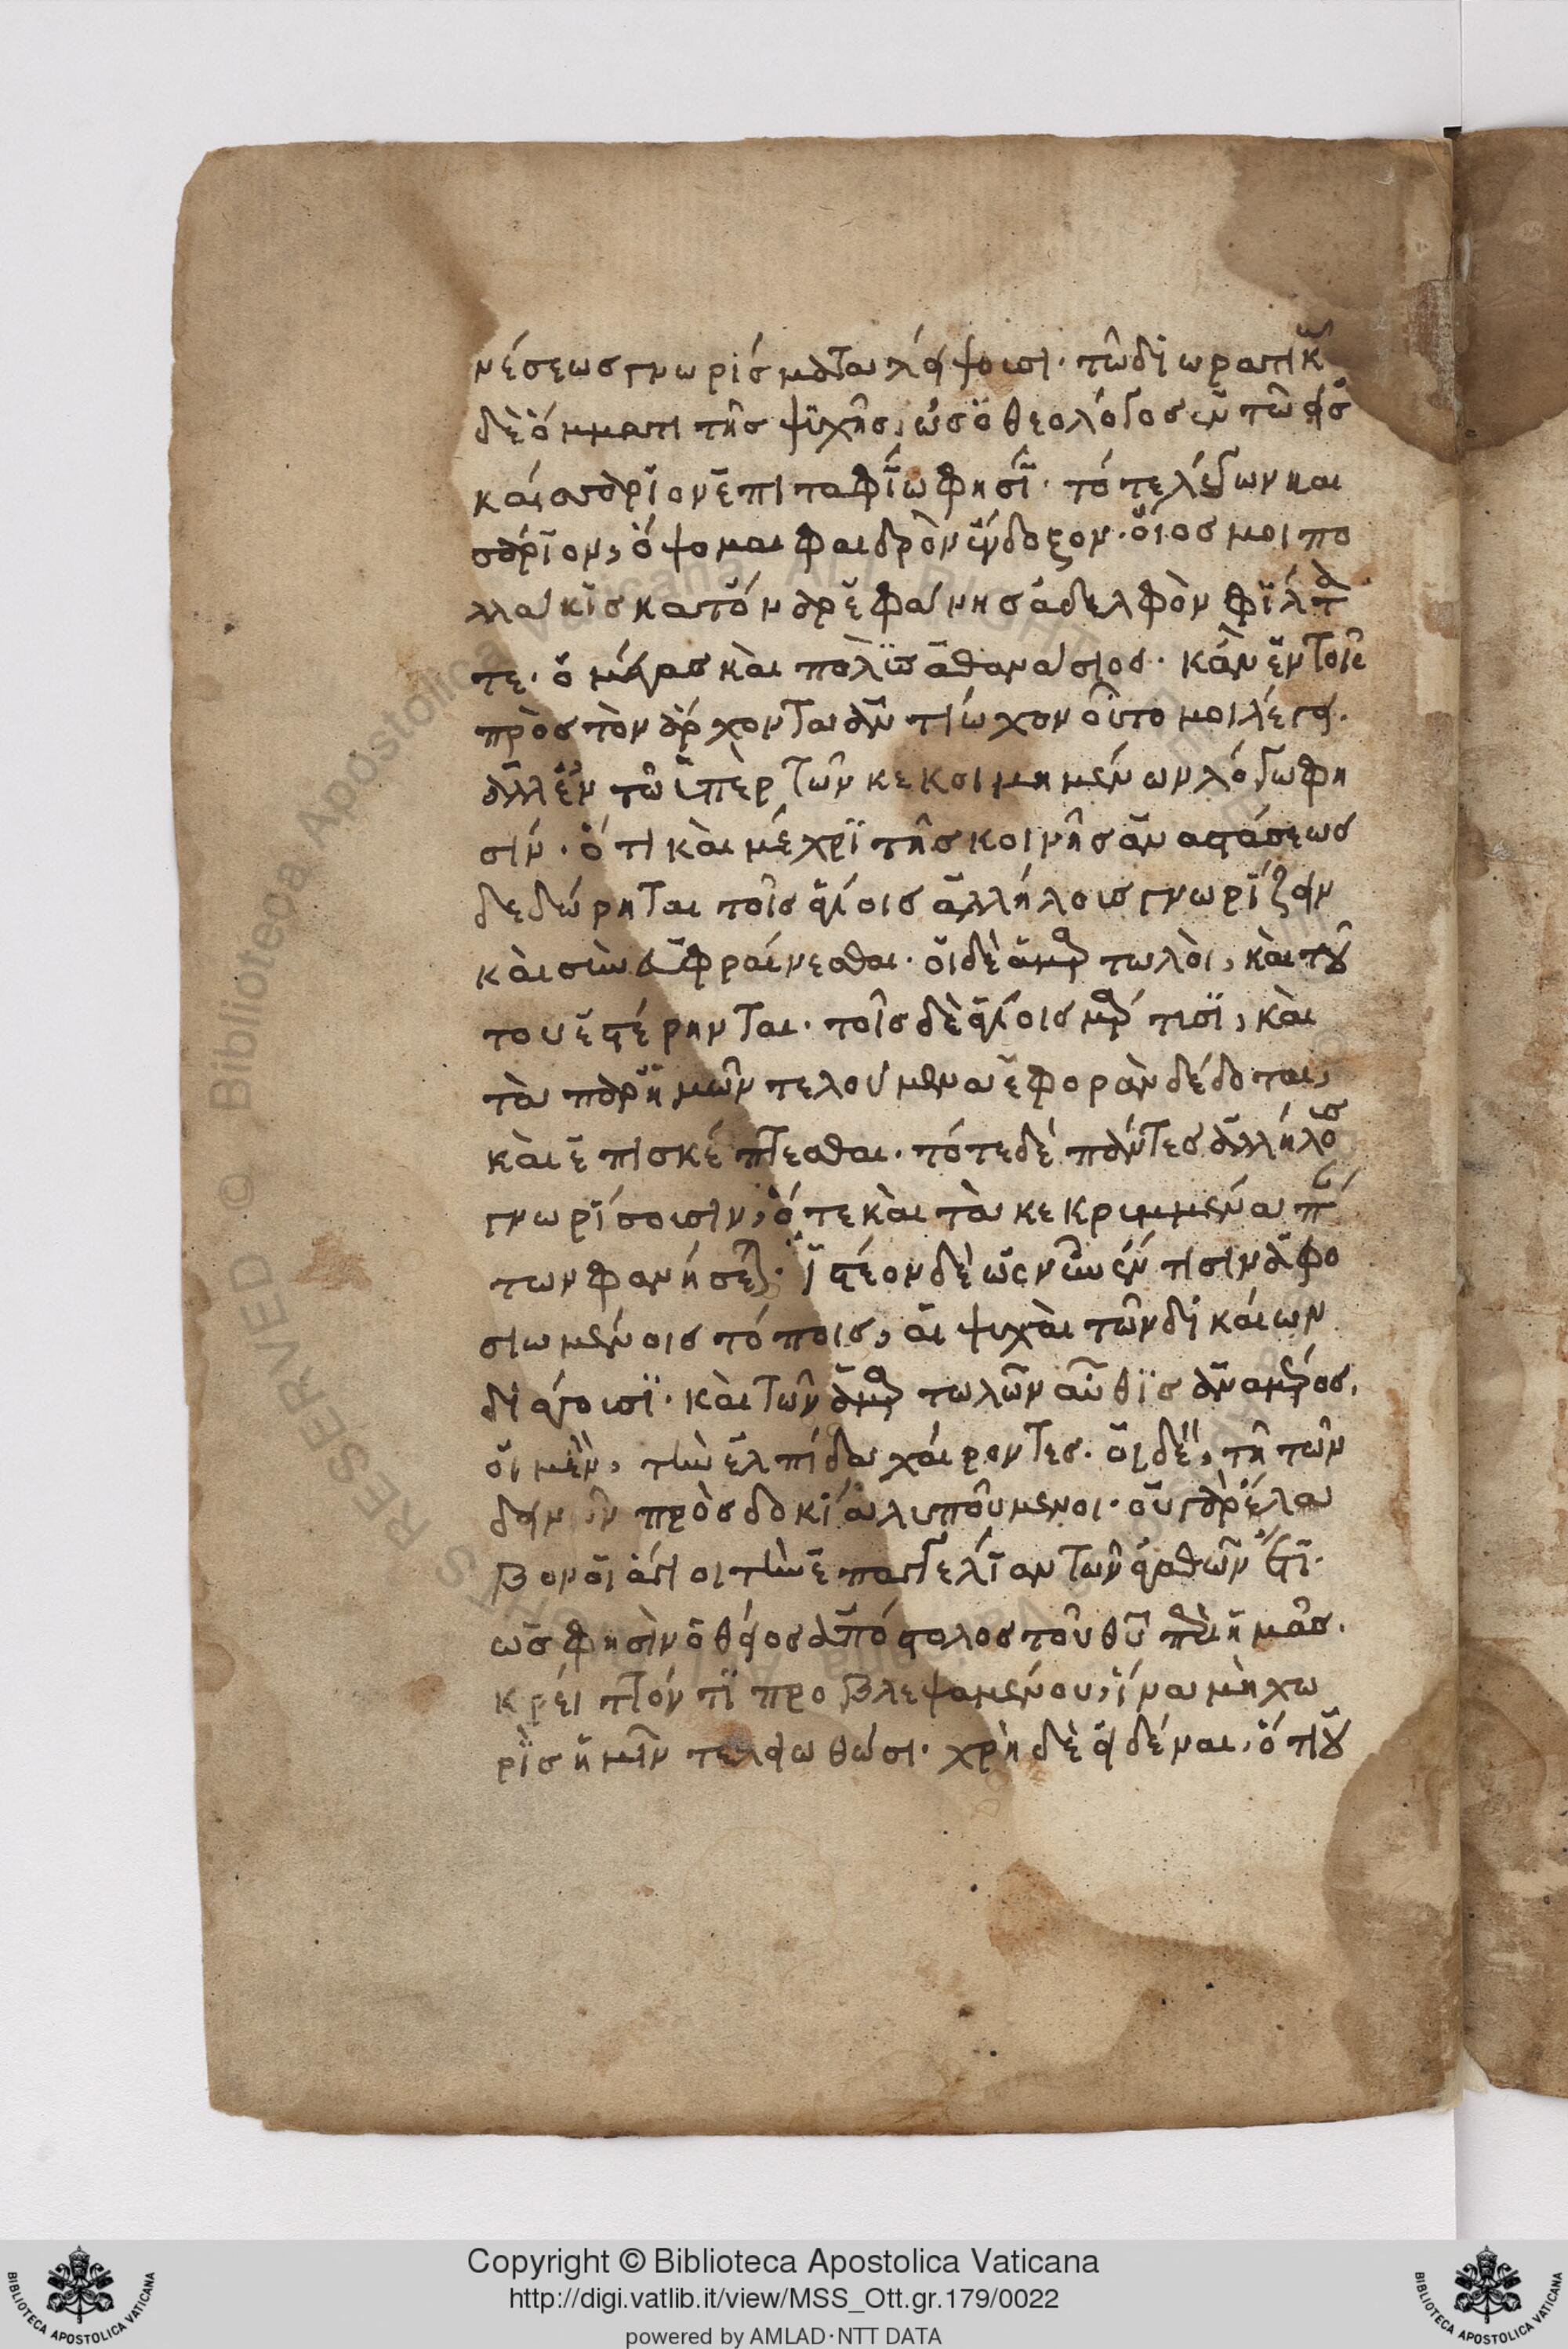 νέσεως γνωρίσματα λείψουσι· τῶ διωρατικῶ
δὲ ὄμματι τῆς ψυχῆς, ὡς ὁ θεολόγος ἐν τῶ εἰς
καισάριον ἐπιταφίω φησί· τότε λέγων και
σάριον, ὄψομαι φαιδρὸν ἔνδοξον· οἷος μοι πο
λλάκις κατ' ὄναρ ἐφάνης ἀδελφὸν φίλτα
τε· ὁ μέγας καὶ πολὺς ἀθανάσιος· κἂν ἐν τοῖς
πρὸς τὸν ἄρχοντα ἀντίωχον οὕτο μοι λέγει·
ἀλλ' ἐν τῶ ὑπὲρ τῶν κεκοιμημένων λόγω φη
σίν· ὅτι καὶ μέχρι τῆς κοινῆς ἀναστάσεως
δεδώρηται τοῖς ἁγίοις ἀλλήλους γνωρίζειν
καὶ συνευφραίνεσθαι· οἱ δὲ ἁμαρτωλοὶ, καὶ τού
του ἐστέρηνται· τοῖς δὲ ἁγίοις μάρτυσι, καὶ
τὰ παρ' ἡμῶν τελούμενα ἐφορὰν δέδοται,
καὶ ἐπισκέπτεσθαι· τότε δὲ πάντες ἀλλήλους
γνωρίσουσιν, ὅτε καὶ τὰ κεκριμμένα πάν
των φανήσεται· ἰστέον δὲ ὡς νῦν ἐν τισιν ἀφο
σιωμένοις τόποις, αἱ ψυχαὶ τῶν δικαίων
διάγουσι· καὶ τῶν ἁμαρτωλῶν αὖθις ἀναμέρος,
οἱ μὲν, τὴν ἐλπίδα χαίροντες· οἱ δὲ, τῆ τῶν
δεινῶν προσδοκία λυπούμενοι· οὐ γὰρ ἔλα
βον οἱ ἅγιοι τὴν ἐπαγγελίαν τῶν ἀγαθῶν ἔτι·
ὥς φησὶν ὁ θεῖος ἀπόστολος τοῦ θυ περὶ ἡμᾶς,
κρεῖττόν τι προβλεψαμένου, ἵνα μὴ χω
ρὶς ἡμῶν τελειωθῶσι· χρὴ δὲ εἰδέναι, ὅτι οὐ
Copyright © Biblioteca Apostolica Vaticana
http://digi.vatlib.it/view/MSS_Ott.gr.179/0022
powered by AMLAD·NTT DATA
BIBLIOTECA APOSTOLICA VATICANA
BIBLIOTECA APOSTOLICA VATICANA